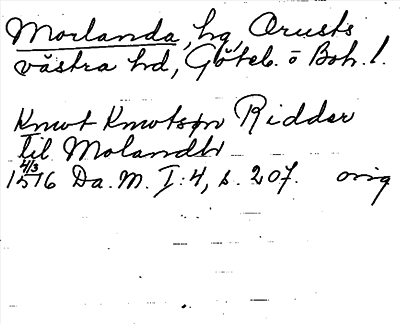 Morlanda, hg, Orusts
västra hd, Göteb. o Boh. l.
Knwt Knwtsøn Ridder
til Molandh
4/3
1516 Da. M. I:4, s. 207. orig